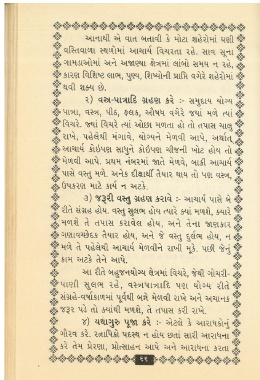 આનાથી એ વાત બતાવી કે મોટા શહેરોમાં ઘણી
વસ્તિવાળા સ્થળોમાં આચાર્ય વિચરતા રહે. સાવ સૂના
ગામડાઓમાં અને અજાણ્યા ક્ષેત્રોમાં લાંબો સમય ન રહે,
કારણ વિશિષ્ટ લાભ, પુણ્ય, શિષ્યોની પ્રાપ્તિ વગેરે શહેરોમાં
થવી શક્ય છે.
૨) વસ્ત્ર-પાત્રાદિ ગ્રહણ કરે :- સમુદાય યોગ્ય
પાત્રા, વસ્ત્ર, પીઠ, ફલક, ઔષધ વગેરે જ્યાં મળે ત્યાં
વિચરે. જ્યાં વિચરે ત્યાં ઓછા મળતા હો તો તપાસ ચાલુ
રાખે, પહેલેથી મંગાવે, યોગ્યને મેળવી આપે. અર્થાત્
આચાર્ય કોઇપણ સાધુને કોઇપણ ચીજની ખોટ હોય તો
મેળવી આપે. પ્રથમ નંબરમાં જાતે મેળવે, બાકી આચાર્ય
પાસે વસ્તુ મળે. અનેક દીક્ષાર્થી તૈયાર થાય તો પણ વસ્ત્ર,
ઉપકરણ માટે કાર્ય ન અટકે.
૩) જરૂરી વસ્તુ ગ્રહણ કરાવે :- આચાર્ય પાસે બે
રીતે સંગ્રહ હોય. વસ્તુ સુલભ હોય ત્યારે ક્યાં મળશે, ક્યારે
મળશે તે તપાસ કરાવેલ હોય, અને તેના જાણકાર
ગણાવચ્છેદક તૈયાર હોય, અને જે વસ્તુ દુર્લભ હોય, ન
મળે તે પહેલેથી આચાર્ય મેળવીને રાખી મૂકે. પછી જેનું
કામ અટકે તેને આપે.
આ રીતે બહુજનયોગ્ય ક્ષેત્રમાં વિચરે, જેથી ગોચરી-
પાણી સુલભ રહે, વસ્ત્રપાત્રાદિ પણ યોગ્ય રીતે
સંગ્રહે-વર્ષાકાળમાં પૂર્વથી બન્ને મેળવી રાખે અને અચાનક
જરૂર પડે તો ક્યાંથી મળશે, તે તપાસ કરી રાખે.
૪) યથાગુરુ પૂજા કરે :- એટલે કે આરાધકોનું
ગૌરવ કરે. રત્નાધિકો પદસ્થ ન હોય છતાં સારી આરાધના
કરે તેમ પ્રેરણા, પ્રોત્સાહન આપે અને આરાધના કરતા